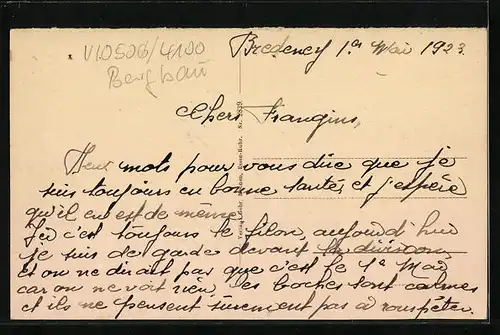 V10506/4100
Bergbau
Bredeney 1er Mai 1923
Chers Frangins,
Deux mots pour vous dire que je
suis toujours en bonne santé, et j'espère
qu'il en est de même.
Ici c'est toujours le filon, aujourd'hui
je suis de garde devant la division
et on ne dirait pas que c'est le 1er Mai
car on ne voit rien les boches sont calmes
et ils ne pensent surement pas à rouspéter.